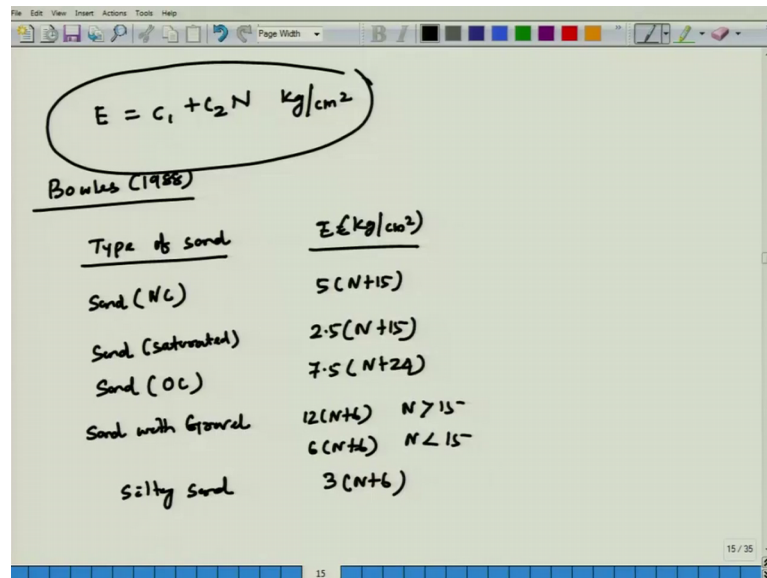 File Edit View Insert Actions Tools Help
Page Width
B I
E = C₁ + C₂N kg/cm²
Bowles (1988)
Type of sand E (kg/cm²)
Sand (NC) 5(N+15)
Sand (saturated) 2.5(N+15)
Sand (OC) 7.5(N+24)
Sand with Gravel 12(N+6) N > 15
6(N+6) N < 15
Silty Sand 3(N+6)
15 / 35
15